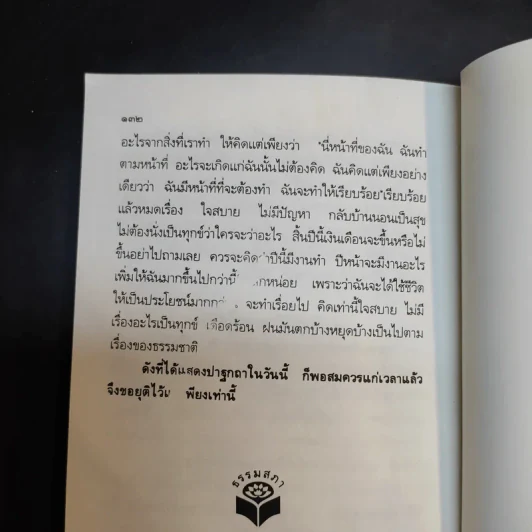 ๑๓๒
อะไรจากสิ่งที่เราทำ ให้คิดแต่เพียงว่า "นี่หน้าที่ของฉัน ฉันทำ
ตามหน้าที่ อะไรจะเกิดแก่ฉันนั้นไม่ต้องคิด ฉันคิดแต่เพียงอย่าง
เดียวว่า ฉันมีหน้าที่ที่จะต้องทำ ฉันจะทำให้เรียบร้อย"เรียบร้อย
แล้วหมดเรื่อง ใจสบาย ไม่มีปัญหา กลับบ้านนอนเป็นสุข
ไม่ต้องนั่งเป็นทุกข์ว่าใครจะว่าอะไร สิ้นปีนี้เงินเดือนจะขึ้นหรือไม่
ขึ้นอย่าไปถามเลย ควรจะคิดว่าปีนี้มีงานทำ ปีหน้าจะมีงานอะไร
เพิ่มให้ฉันมากขึ้นไปกว่านี้ หน่อย เพราะว่าฉันจะได้ใช้ชีวิต
ให้เป็นประโยชน์มาก จะทำเรื่อยไป คิดเท่านี้ใจสบาย ไม่มี
เรื่องอะไรเป็นทุกข์ เดือดร้อน ฝนมันตกบ้างหยุดบ้างเป็นไปตาม
เรื่องของธรรมชาติ
ดังที่ได้แสดงปาฐกถาในวันนี้ ก็พอสมควรแก่เวลาแล้ว
จึงขอยุติไว้ เพียงเท่านี้
ธรรมสภา